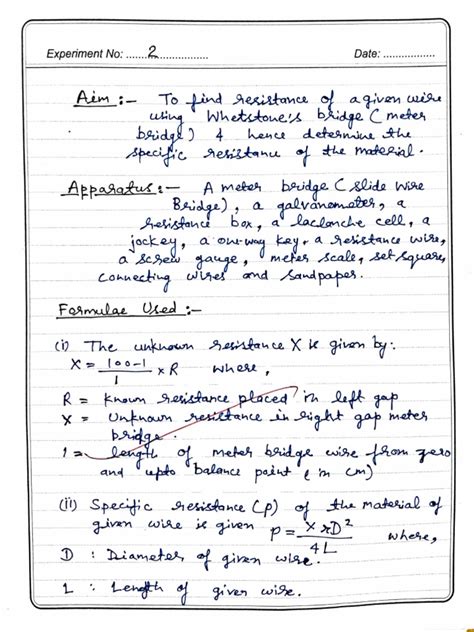 Experiment No: ......2..................
Date: ................
Aim :- To find resistance of a given wire
using Whetstone's bridge (meter
bridge) & hence determine the
specific resistance of the material.
Apparatus :- A meter bridge (slide wire
Bridge), a galvanometer, a
resistance box, a laclanche cell, a
jockey, a one-way key, a resistance wire,
a screw gauge, meter scale, set square,
connecting wires and sandpaper.
Formulae Used :-
(i) The unknown resistance X is given by:
X = 100-l/l × R where,
R = known resistance placed in left gap
X = Unknown resistance in right gap meter
bridge.
l = length of meter bridge wire from zero
and upto balance point (in cm)
(ii) Specific resistance (ρ) of the material of
given wire is given ρ = XπD²/4L where,
D : Diameter of given wire.
L : Length of given wire.